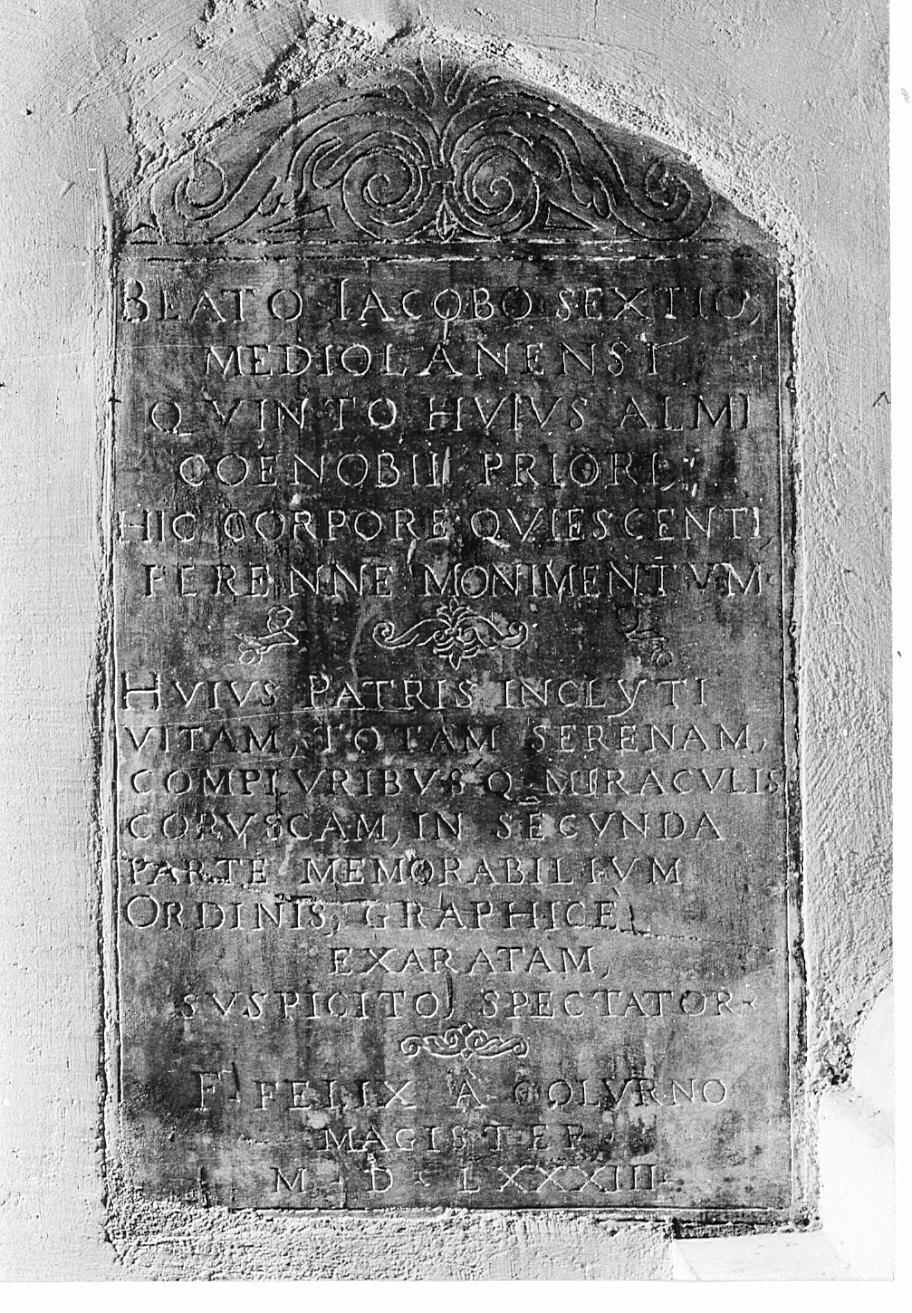 BEATO IACOBO SEXTIO,
MEDIOLANENSI
QVINTO HVIVS ALMI
COENOBII PRIORI,
HIC CORPORE QVIESCENTI
PERENNE MONIMENTVM
HVIVS PATRIS INCLYTI
VITAM, TOTAM SERENAM,
COMPLVRIBVSQ. MIRACVLIS
CORVSCAM, IN SECVNDA
PARTE MEMORABILIVM
ORDINIS, GRAPHICE
EXARATAM,
SVSPICITO SPECTATOR
F. FELIX A COLVRNO
MAGISTER
M D LXXXIII